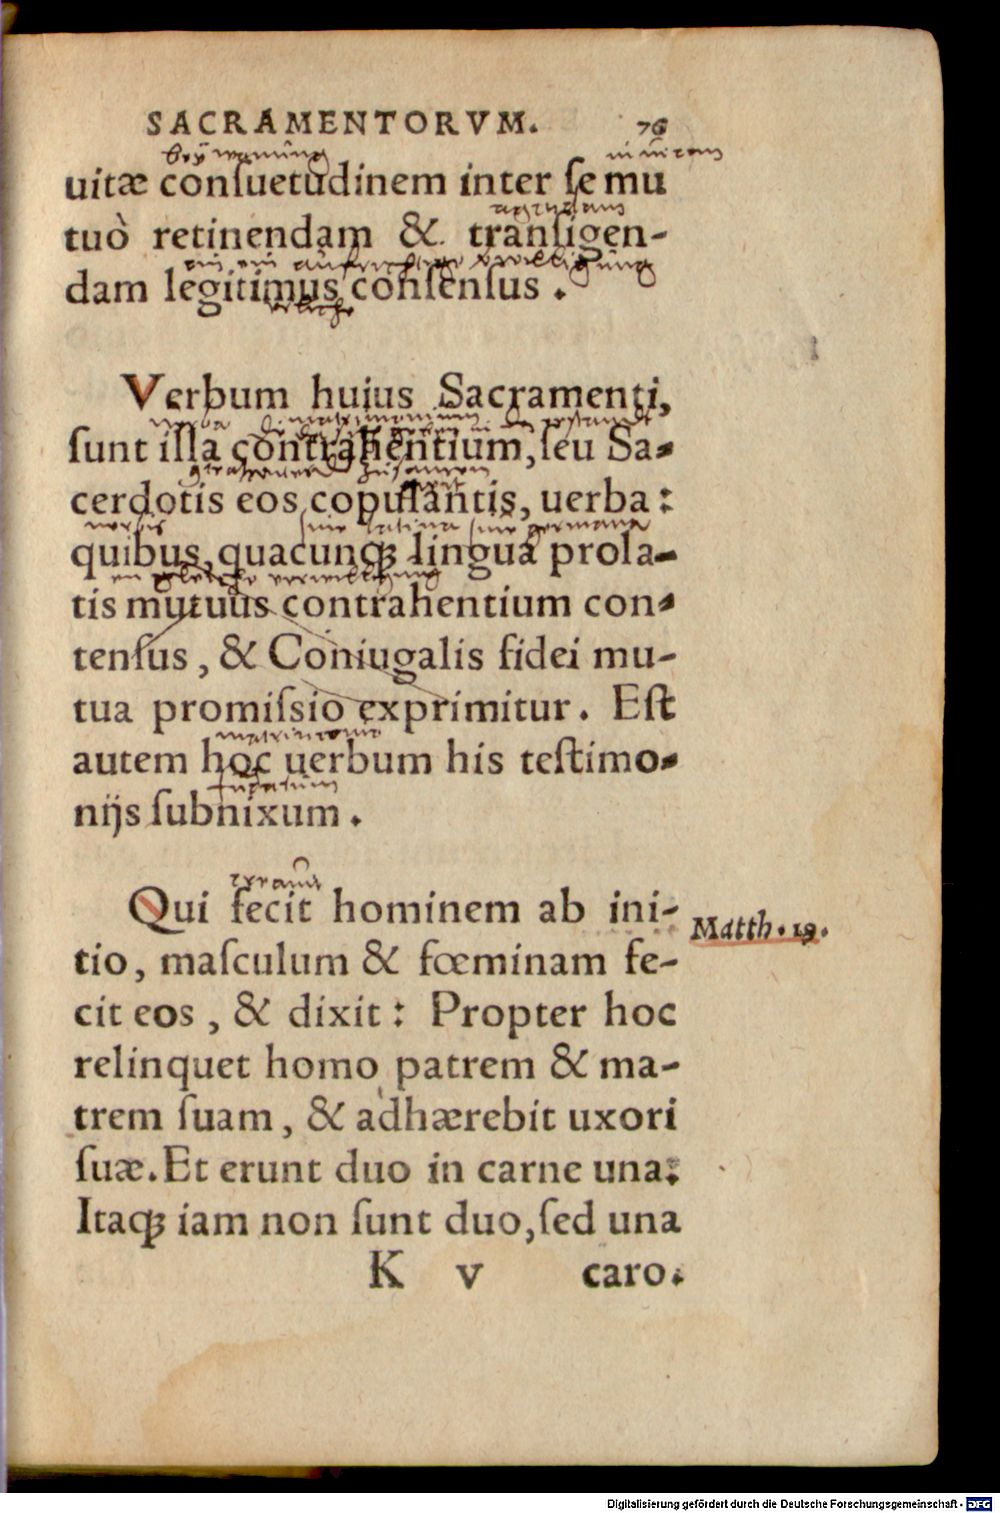 SACRAMENTORVM. 76
beÿwanung
uitæ conſuetudinem inter ſe mu
tuò retinendam & tranſigen-
dam legitimus conſenſus.
Verbum huius Sacramenti,
ſunt illa contrahentium, ſeu Sa-
zusamen
cerdotis eos copulantis, uerba:
verbis ſiue latina ſiue germana
quibus, quacunq; lingua prola-
verwilligung
tis mutuus contrahentium con-
tenſus, & Coniugalis fidei mu-
tua promiſsio exprimitur. Eſt
matrimonio
autem hoc uerbum his teſtimo-
nijs ſubnixum.
Qui fecit hominem ab ini-
Matth. 19.
tio, maſculum & fœminam fe-
cit eos, & dixit: Propter hoc
relinquet homo patrem & ma-
trem ſuam, & adhærebit uxori
ſuæ. Et erunt duo in carne una:
Itaq; iam non ſunt duo, ſed una
K v caro.
Digitalisierung gefördert durch die Deutsche Forschungsgemeinschaft - DFG